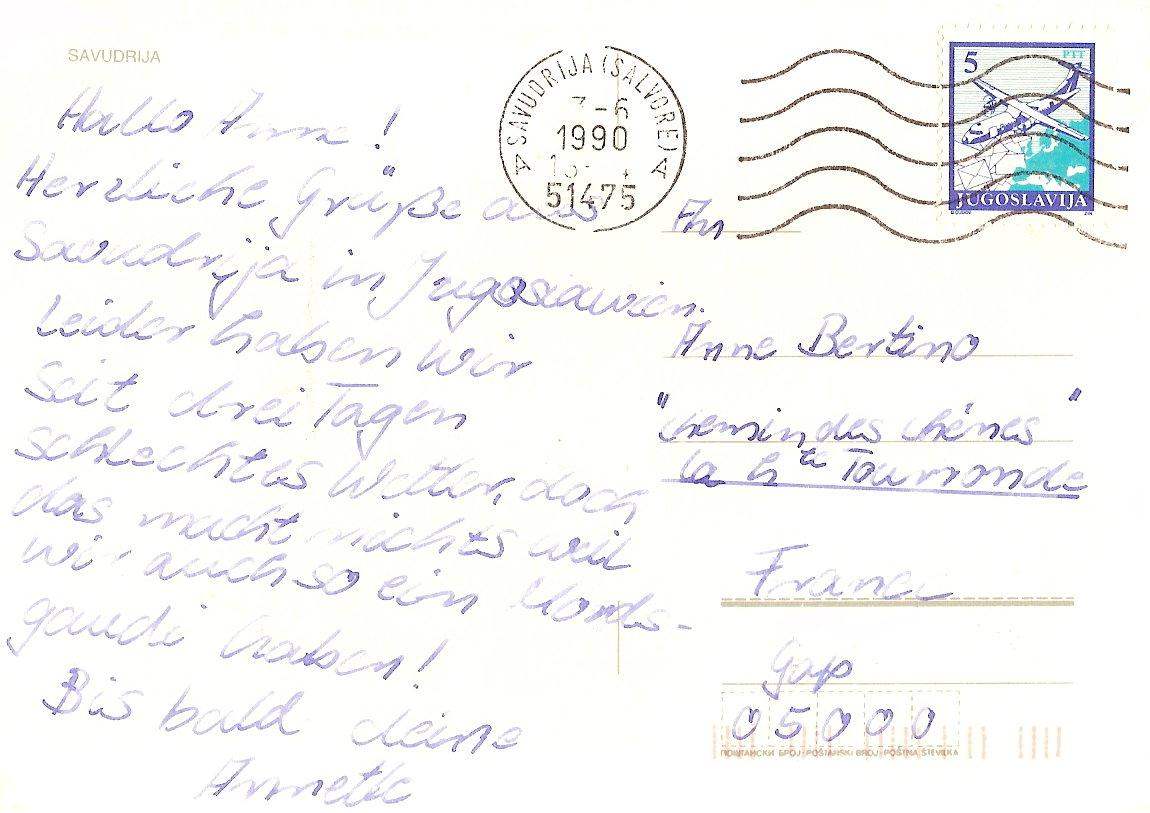 SAVUDRIJA
Hallo Anne!
Herzliche Grüße aus
Savudrija in Jugoslawien.
Leider haben wir
seit drei Tagen
schlechtes Wetter, doch
das macht nichts weil
wir auch so ein Mords-
gaudi haben!
Bis bald deine
Annette
SAVUDRIJA (SALVORE)
-6
1990
51475
5
PTT
JUGOSLAVIJA
An
Anne Bertino
"chemin des chênes"
La Hte Tourronde
France
Gap
05000
ПОШТАНСКИ БРОЈ-POŠTANSKI BROJ-POŠTNA ŠTEVILKA